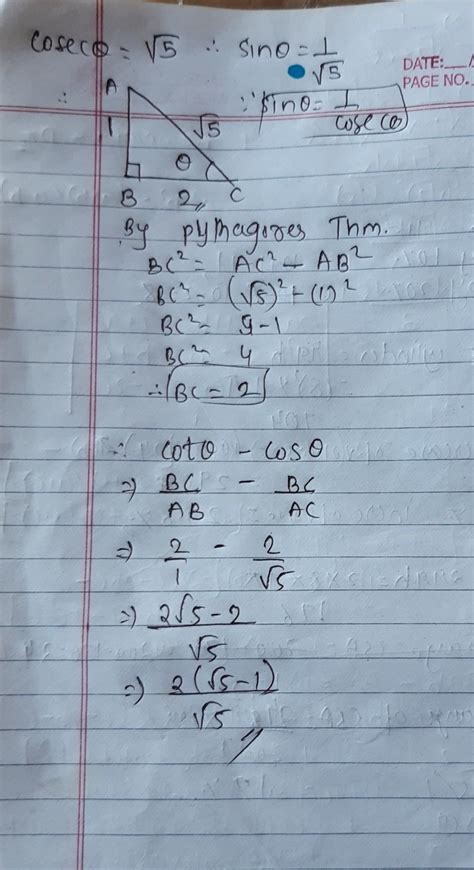 cosecθ = √5 ∴ sinθ = 1/√5
DATE:
PAGE NO.
∴ A
∵ sinθ = 1/cosecθ
1 √5
θ
B 2 C
By pythagores Thm.
BC² = AC² - AB²
BC² = (√5)² - (1)²
BC² = 5-1
BC² = 4
∴ BC = 2
∴ cotθ - cosθ
⇒ BC/AB - BC/AC
⇒ 2/1 - 2/√5
⇒ 2√5-2/√5
⇒ 2(√5-1)/√5